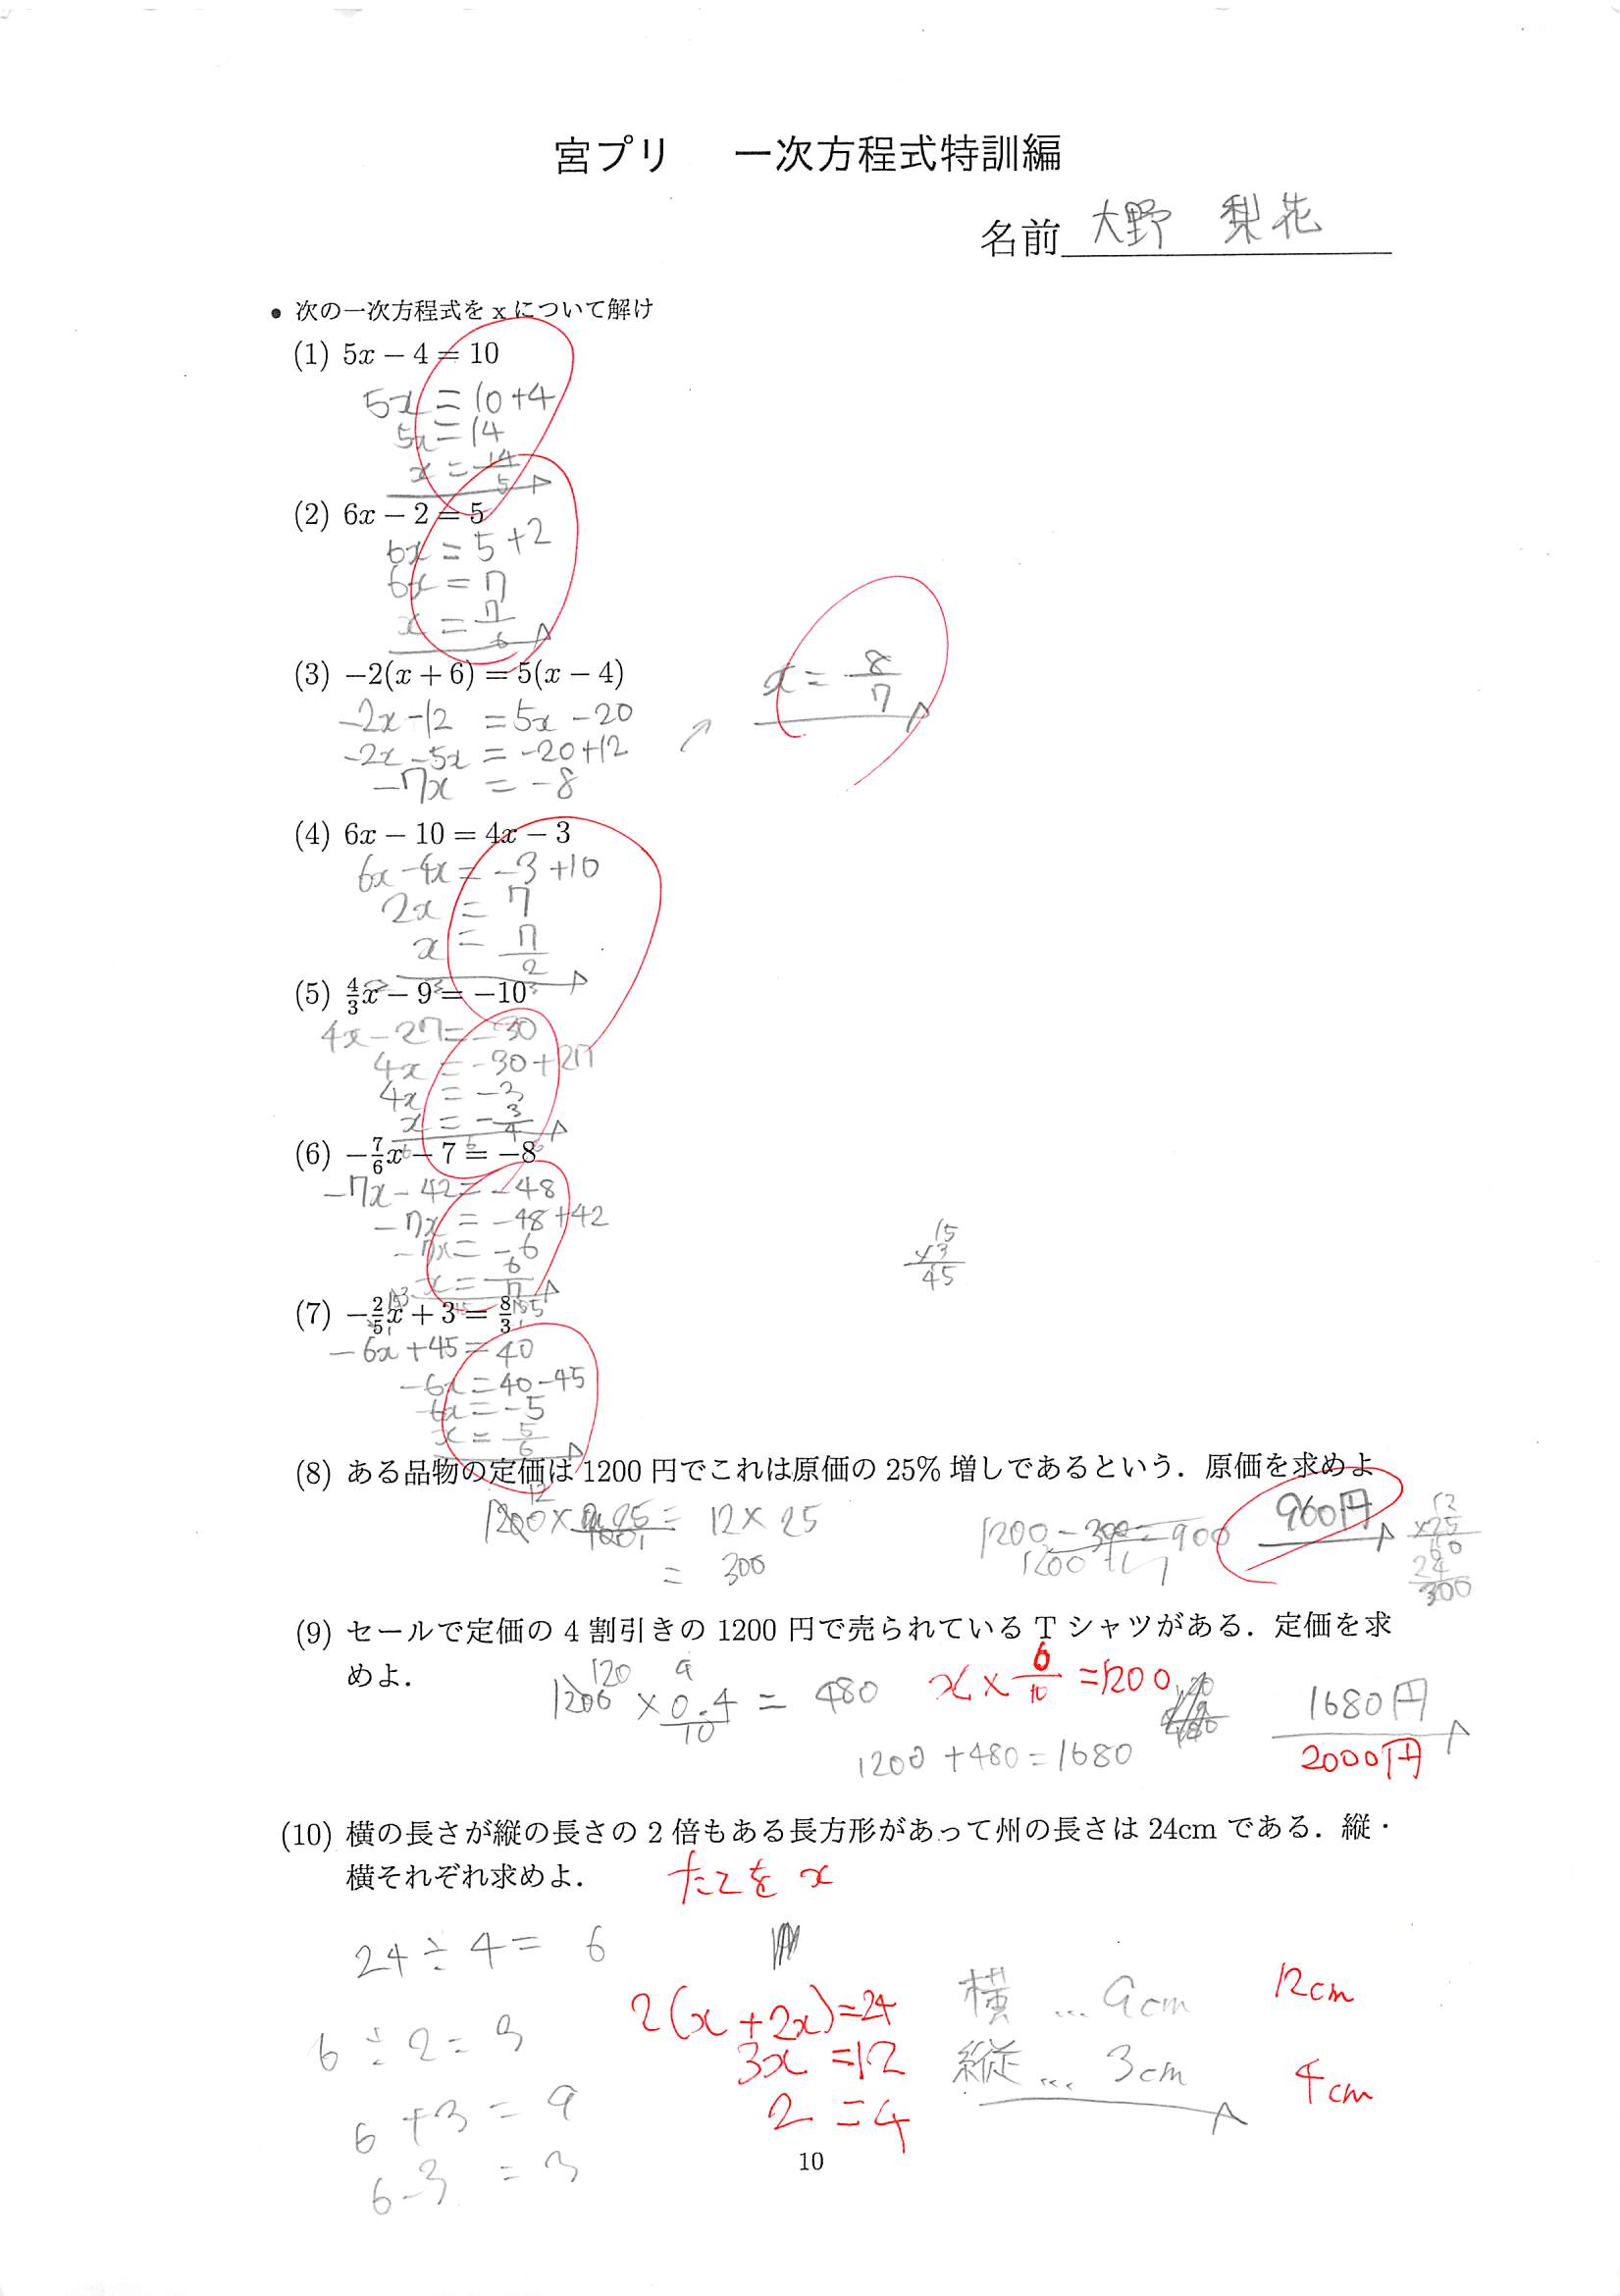 宮プリ 一次方程式特訓編
名前 大野 梨花
• 次の一次方程式を x について解け
(1) 5x − 4 = 10
5x = 10+4
5x = 14
x = 14/5
(2) 6x − 2 = 5
6x = 5+2
6x = 7
x = 7/6
(3) −2(x + 6) = 5(x − 4)
-2x-12 = 5x-20
-2x-5x = -20+12
-7x = -8
x = 8/7
(4) 6x − 10 = 4x − 3
6x-4x = -3+10
2x = 7
x = 7/2
(5) 4/3x − 9 = −10
4x-27 = -30
4x = -30+27
4x = -3
x = -3/4
(6) −7/6x − 7 = −8
-7x-42 = -48
-7x = -48+42
-7x = -6
x = 6/7
15
×3
45
(7) −2/5x + 3 = 8/3
-6x+45 = 40
-6x = 40-45
-6x = -5
x = 5/6
(8) ある品物の定価は 1200 円でこれは原価の 25% 増しであるという．原価を求めよ
= 12×25
= 300
1200-300=900
960円
12
×25
60
24
300
(9) セールで定価の 4 割引きの 1200 円で売られている T シャツがある．定価を求
めよ．
1200 × 0.4/10 = 480
x × 6/10 = 1200
1200+480=1680
1680円
2000円
(10) 横の長さが縦の長さの 2 倍もある長方形があって州の長さは 24cm である．縦・
横それぞれ求めよ．
たてを x
24÷4= 6
6÷2=3
6+3=9
6-3=3
2(x+2x)=24
3x=12
2=4
横…9cm 12cm
縦…3cm 4cm
10